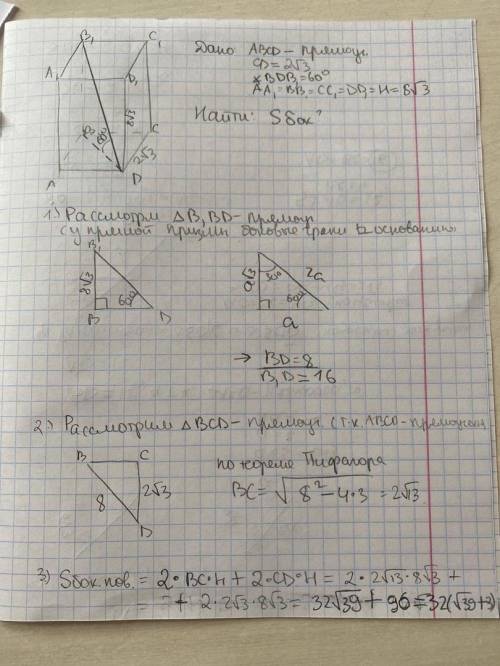 Дано: ABCD - прямоуг.
CD = 2√3
∠BDB₁ = 60°
AA₁ = BB₁ = CC₁ = DD₁ = H = 8√3
Найти: Sбок?
B₁ C₁
A₁ D₁
8√3
B 60° C
2√3
A D
1) Рассмотрим △B₁BD - прямоуг
(у прямой призмы боковые грани ⊥ основанию)
B₁
8√3
60°
B D
a√3 30° 2a
60°
a
→ BD = 8
B₁D = 16
2) Рассмотрим △BCD - прямоуг. (т.к. ABCD - прямоугольн
B C
8 2√3
D
по теореме Пифагора
BC = √8² - 4·3 = 2√13
3) Sбок.пов. = 2·BC·H + 2·CD·H = 2·2√13·8√3 +
= + 2·2√3·8√3 = 32√39 + 96 = 32(√39+3)